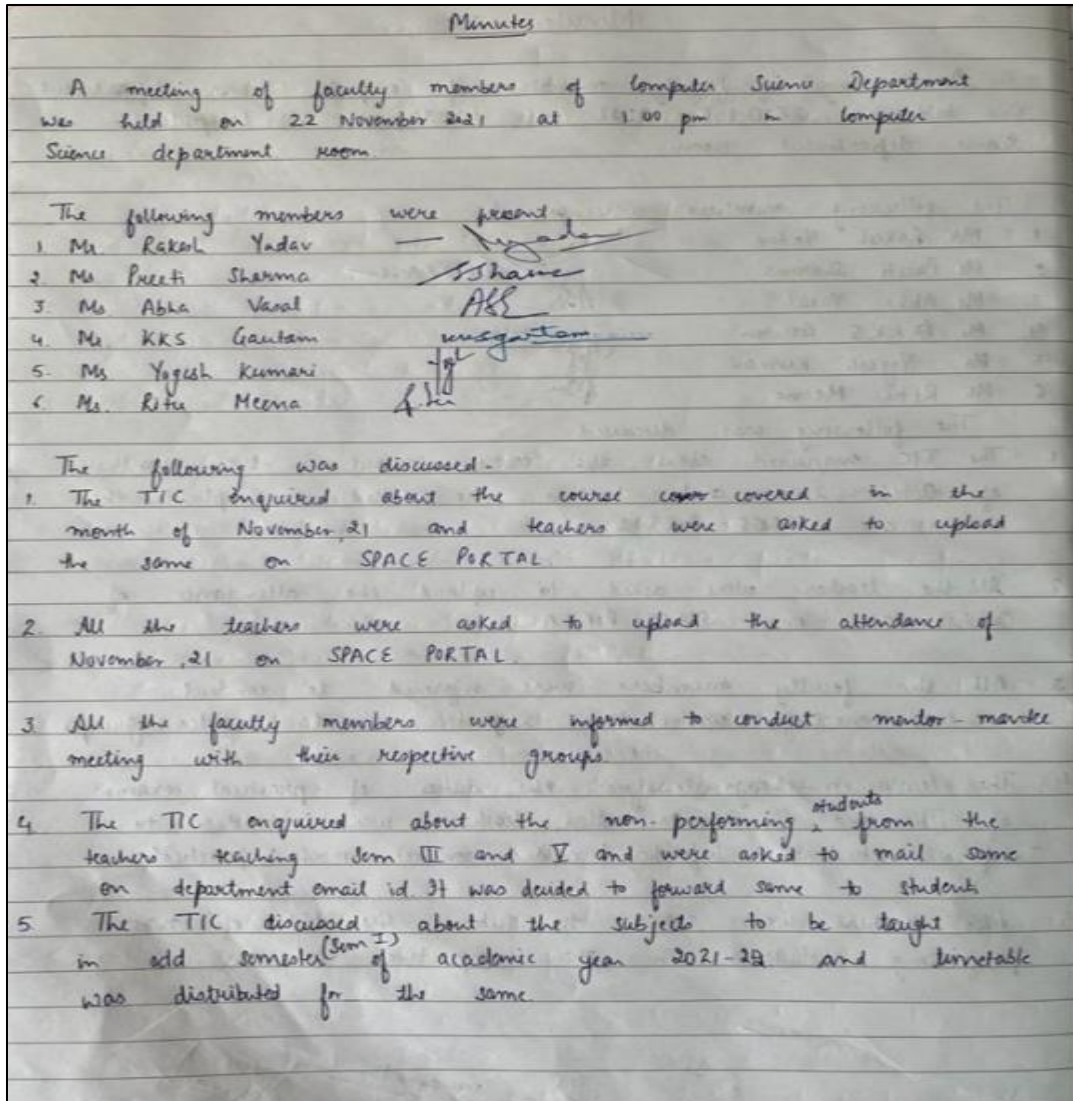 Minutes
A meeting of faculty members of Computer Science Department
was held on 22 November 2021 at 1:00 pm in Computer
Science department room.
The following members were present
1. Mr Rakesh Yadav —
2. Ms Preeti Sharma
3. Ms Abha Vasal
4. Mr KKS Gautam
5. Ms Yogesh Kumari
6. Ms. Ritu Meena
The following was discussed.
1. The TIC enquired about the course covered in the
month of November, 21 and teachers were asked to upload
the same on SPACE PORTAL.
2. All the teachers were asked to upload the attendance of
November, 21 on SPACE PORTAL.
3. All the faculty members were informed to conduct mentor-mentee
meeting with their respective groups
4 The TIC enquired about the non-performing students from the
teachers teaching Sem III and V and were asked to mail same
on department email id. It was decided to forward same to students
5 The TIC discussed about the subjects to be taught
in odd semester (Sem I) of academic year 2021-22 and timetable
was distributed for the same.